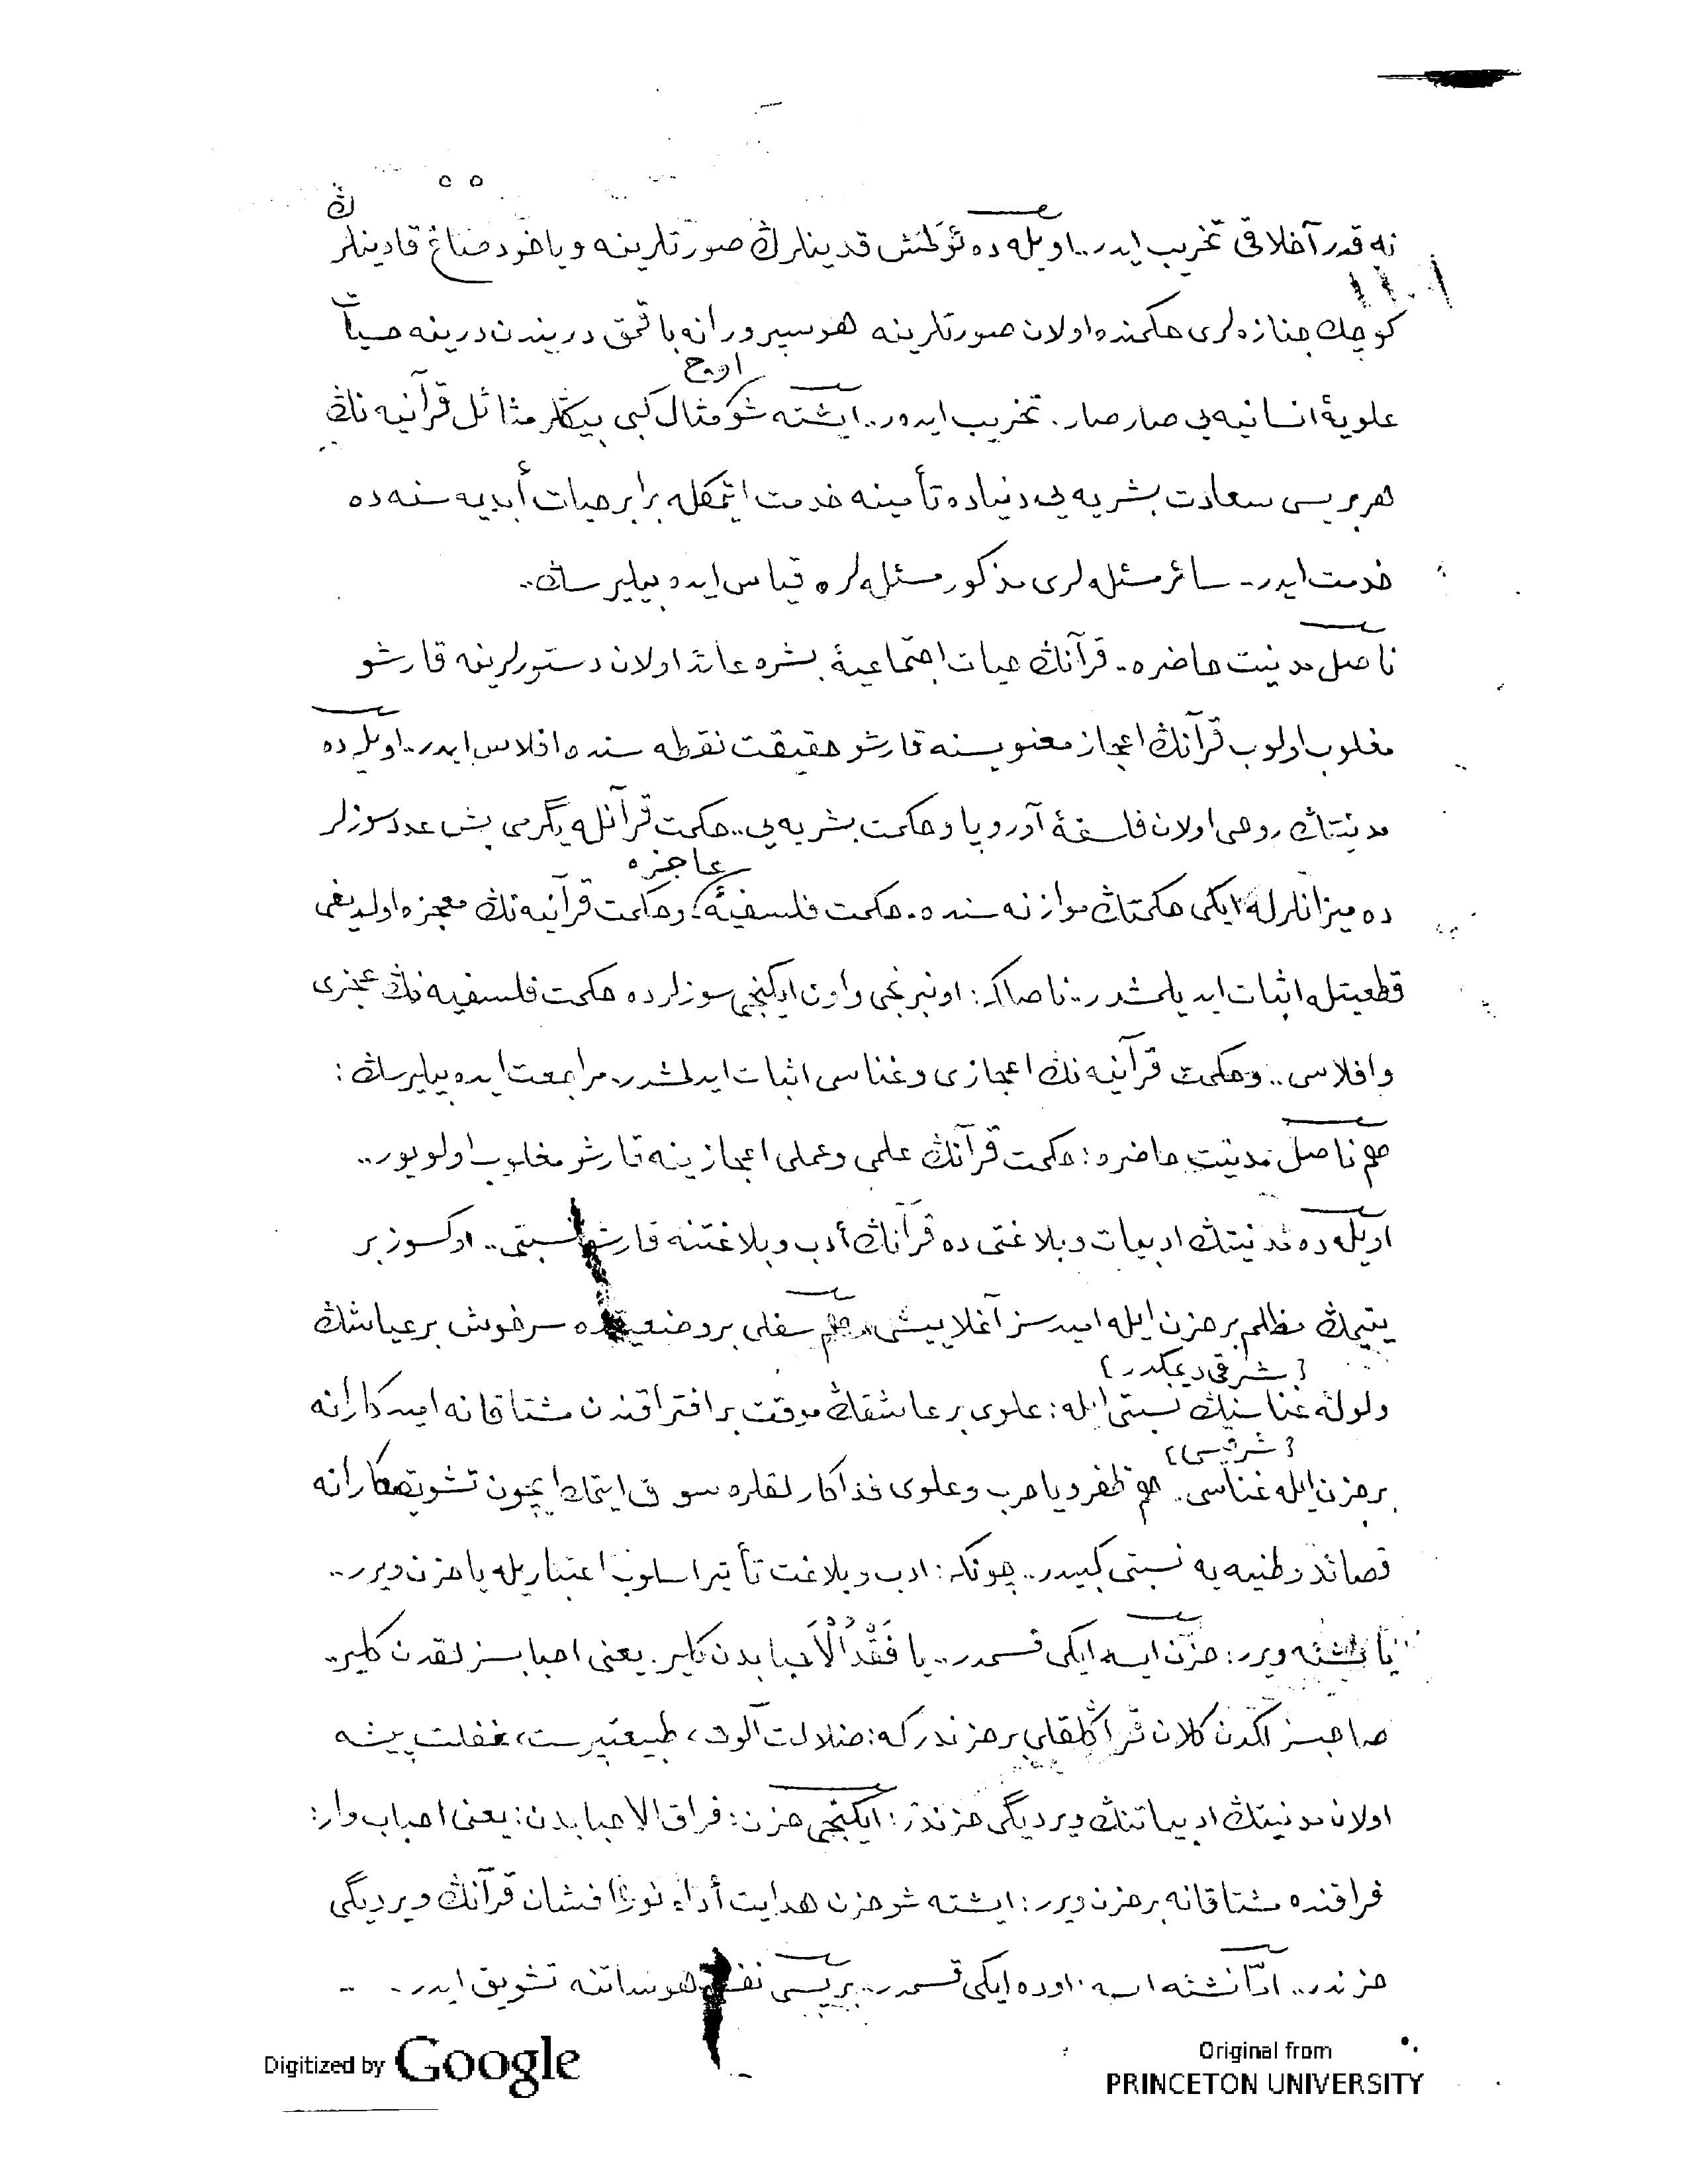 ٥٥
نه قدر آخلاقى تخريب ايدر.. اويله ده ئولمش قدينلرڭ صورتلرينه و ياخود صاغ قادينلرڭ
كوچك جنازه لرى حكمنده اولان صورتلرينه هوسپرورانه باقمق دريندن درينه حسيات
علويۀ انسانيه يى صارصار. تخريب ايدور.. ايشته شو اوچ مثال كبى بيڭلر مسائل قرآنيه نڭ
هر بريسى سعادت بشريه يى دنياده تأمينه خدمت ايتمكله برابر حيات أبديه سنه ده
خدمت ايدر.. سائر مسئله لرى مذكور مسئله لره قياس ايده بيليرسڭ..
ناصل مدنيت حاضره.. قرآنڭ حيات اجتماعيۀ بشره عائد اولان دستورلرينه قارشو
مغلوب اولوب قرآنڭ اعجاز معنويسنه قارشو حقيقت نقطه سنده افلاس ايدر.. اويله ده
مدنيتڭ روحى اولان فلسفۀ آوروپا و حكمت بشريه يى.. حكمت قرآنله يگرمى بش عدد سوزلر
ده ميزانلرله ايكى حكمتڭ موازنه سنده. حكمت فلسفيۀ عاجزه و حكمت قرآنيه نڭ معجزه اولديغى
قطعيتله اثبات ايديلمشدر.. ناصلكه: اونبرنجى و اون ايكنجى سوزلرده حكمت فلسفيه نڭ عجزى
و افلاسى.. و حكمت قرآنيه نڭ اعجازى و غناسى اثبات ايدلمشدر. مراجعت ايده بيليرسڭ:
هم ناصل مدنيت حاضره: حكمت قرآنڭ علمى و عملى اعجازينه قارشو مغلوب اولويور..
اويله ده مدنيتڭ ادبيات و بلاغتى ده قرآنڭ أدب و بلاغتنه قارشو نسبتى.. اوكسوز بر
يتيمڭ مظلم بر حزن ايله اميدسز آغلاييشى.. هم سفلى بر وضعيتده سرخوش بر عياشڭ
ولولۀ غناسنڭ {شرقى ديمكدر} نسبتى ايله: علوى بر عاشقڭ موقت بر افتراقندن مشتاقانه اميدكارانه
بر حزن ايله غناسى {شرقيسى}.. هم ظفر و يا حرب و علوى فداكارلقلره سوق ايتمك ايچون تشويقكارانه
قصائد وطنيه يه نسبتى كبيدر.. چونكه: ادب و بلاغت تأثير اسلوب اعتباريله يا حزن ويرر..
يا نشئه ويرر: حزن ايسه ايكى قسمدر.. يا فَقْدُ الْاَحبابدن كلير. يعنى احبابسزلقدن كلير..
صاحبسزلكدن كلان قراڭلقلى بر حزندر كه: ضلالت آلود، طبيعتپرست، غفلت پيشه
اولان مدنيتڭ ادبياتنڭ ويرديگى حزندر: ايكنجى حزن: فراق الاحبابدن: يعنى احباب وار:
فراقنده مشتاقانه بر حزن ويرر: ايشته شو حزن هدايت أداء نور افشان قرآنڭ ويرديگى
حزندر.. امّا نشئه ايسه: اوده ايكى قسمدر.. بريسى نفسى هوساتنه تشويق ايدر..
Digitized by Google
Original from
PRINCETON UNIVERSITY